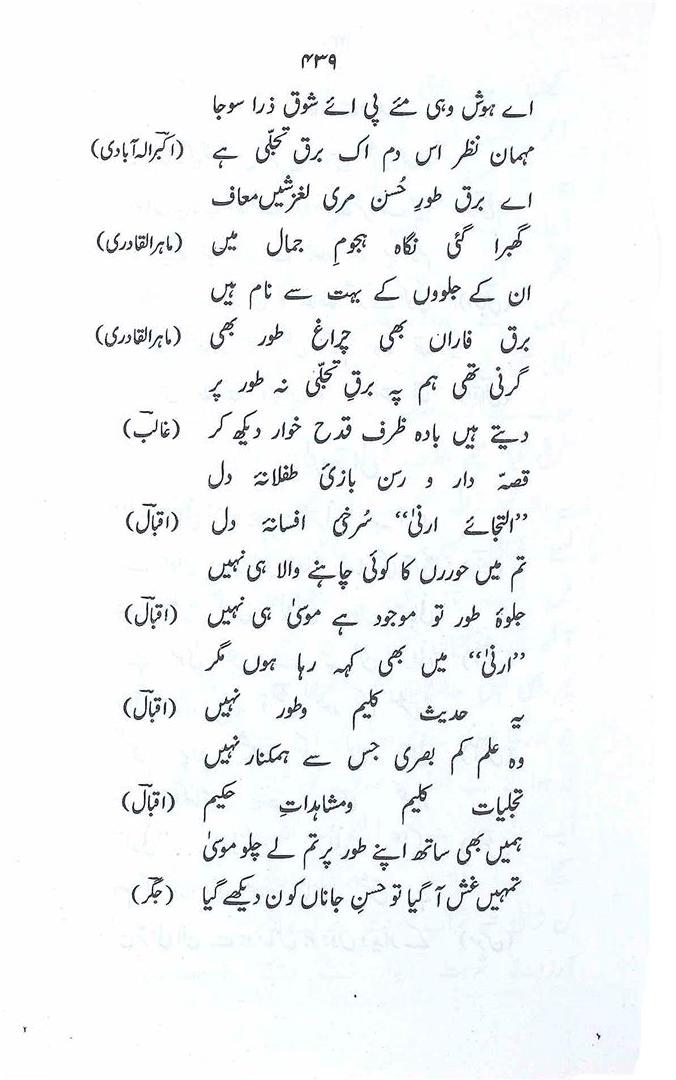 ۴۳۹
اے ہوش وہی مئے پی ائے شوق ذرا سوجا
مہمان نظر اس دم اک برق تجلّی ہے (اکبر الہ آبادی)
اے برق طورِ حُسن مری لغزشیں معاف
گھبرا گئی نگاہ ہجومِ جمال میں (ماہر القادری)
ان کے جلووں کے بہت سے نام ہیں
برق فاراں بھی چراغ طور بھی (ماہر القادری)
گرنی تھی ہم پہ برقِ تجلّی نہ طور پر
دیتے ہیں بادہ ظرف قدح خوار دیکھ کر (غالب)
قصۂ دار و رسن بازیٔ طفلانۂ دل
”التجائے ارنی“ سُرخیٔ افسانۂ دل (اقبال)
تم میں حوروں کا کوئی چاہنے والا ہی نہیں
جلوۂ طور تو موجود ہے موسیٰ ہی نہیں (اقبال)
”ارنی“ میں بھی کہہ رہا ہوں مگر
یہ حدیث کلیم وطور نہیں (اقبال)
وہ علم کم بصری جس سے ہمکنار نہیں
تجلیات کلیم ومشاہداتِ حکیم (اقبال)
ہمیں بھی ساتھ اپنے طور پر تم لے چلو موسیٰ
تمہیں غش آ گیا تو حسنِ جاناں کون دیکھے گیا (جگر)